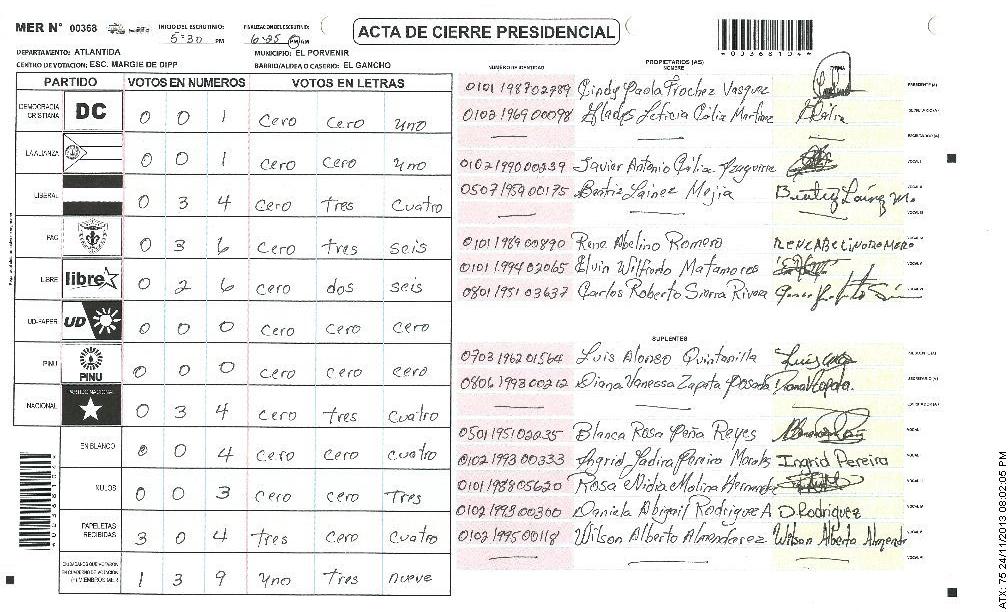 MER N° 00368
INICIO DEL ESCRUTINIO:
5:30 PM
FINALIZACION DEL ESCRUTINIO:
6:25 PM AM
ACTA DE CIERRE PRESIDENCIAL
*00368104*
DEPARTAMENTO: ATLANTIDA
MUNICIPIO: EL PORVENIR
CENTRO DE VOTACION: ESC. MARGIE DE DIPP
BARRIO/ALDEA O CASERIO: EL GANCHO
PARTIDO VOTOS EN NUMEROS VOTOS EN LETRAS
DEMOCRACIA CRISTIANA DC 0 0 1 cero cero uno
LA ALIANZA 0 0 1 cero cero uno
LIBERAL 0 3 4 cero tres cuatro
PAC 0 3 6 cero tres seis
LIBRE libre 0 2 6 cero dos seis
UD-FAPER UD 0 0 0 cero cero cero
PINU PINU 0 0 0 cero cero cero
NACIONAL PARTIDO NACIONAL 0 3 4 cero tres cuatro
EN BLANCO 0 0 4 cero cero cuatro
NULOS 0 0 3 cero cero Tres
PAPELETAS RECIBIDAS 3 0 4 tres cero cuatro
CIUDADANOS QUE VOTARON EN CUADERNO DE VOTACION (+) MIEMBROS MER 1 3 9 uno tres nueve
PROPIETARIOS (AS)
NÚMERO DE IDENTIDAD NOMBRE FIRMA
0101 198702989 Cindy Paola Trochez Vasquez PRESIDENTE (A)
0103 1969 00098 Gladys Leticia Calix Martinez SECRETARIO (A)
ESCRUTADOR (A)
0102 1990 00239 Javier Antonio Calix Yzaguirre VOCAL I
0507 1959 00175 Beatriz Lainez Mejia Beatriz Laínez M. VOCAL II
VOCAL III
0101 1989 00890 Rene Abelino Romero RENE ABELINO ROMERO
0101 1994 02065 Elvin Wilfredo Matamoros VOCAL V
0801 1951 03637 Carlos Roberto Sierra Rivera
SUPLENTES
0703 1962 01564 Luis Alonso Quintanilla PRESIDENTE (A)
0806 1993 00212 Diana Vanessa Zapata Posada Diana Zapata. SECRETARIO (A)
ESCRUTADOR (A)
0501 1951 02035 Blanca Rosa Peña Reyes VOCAL I
0102 1993 00333 Ingrid Yadira Pereira Morales Ingrid Pereira
0101 1988 05620 Rosa Nidia Molina Hernandez
0102 1993 00300 Daniela Abigail Rodriguez A D Rodriguez
0102 1995 00118 Wilson Alberto Almendarez Wilson Alberto Almendar
ATX: 75 24/11/2013 08:02:05 PM